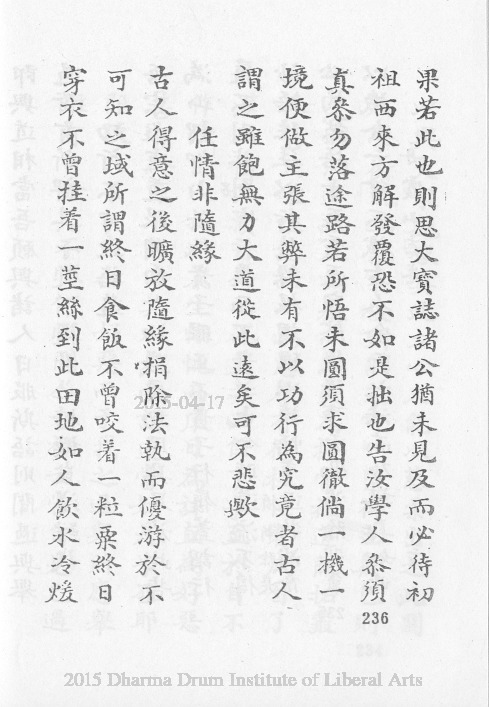 果若此也則思大寶誌諸公猶未見及而必待初
祖西來方解發覆恐不如是拙也告汝學人叅須
真叅勿落途路若所悟未圓須求圓徹倘一機一
境便做主張其弊未有不以功行為究竟者古人
謂之雖飽無力大道從此遠矣可不悲歟
任情非隨緣
古人得意之後曠放隨緣捐除法執而優游於不
可知之域所謂終日食飯不曾咬着一粒粟終日
穿衣不曾挂着一莖絲到此田地如人飲水冷煖
236
2015-04-17
2015 Dharma Drum Institute of Liberal Arts